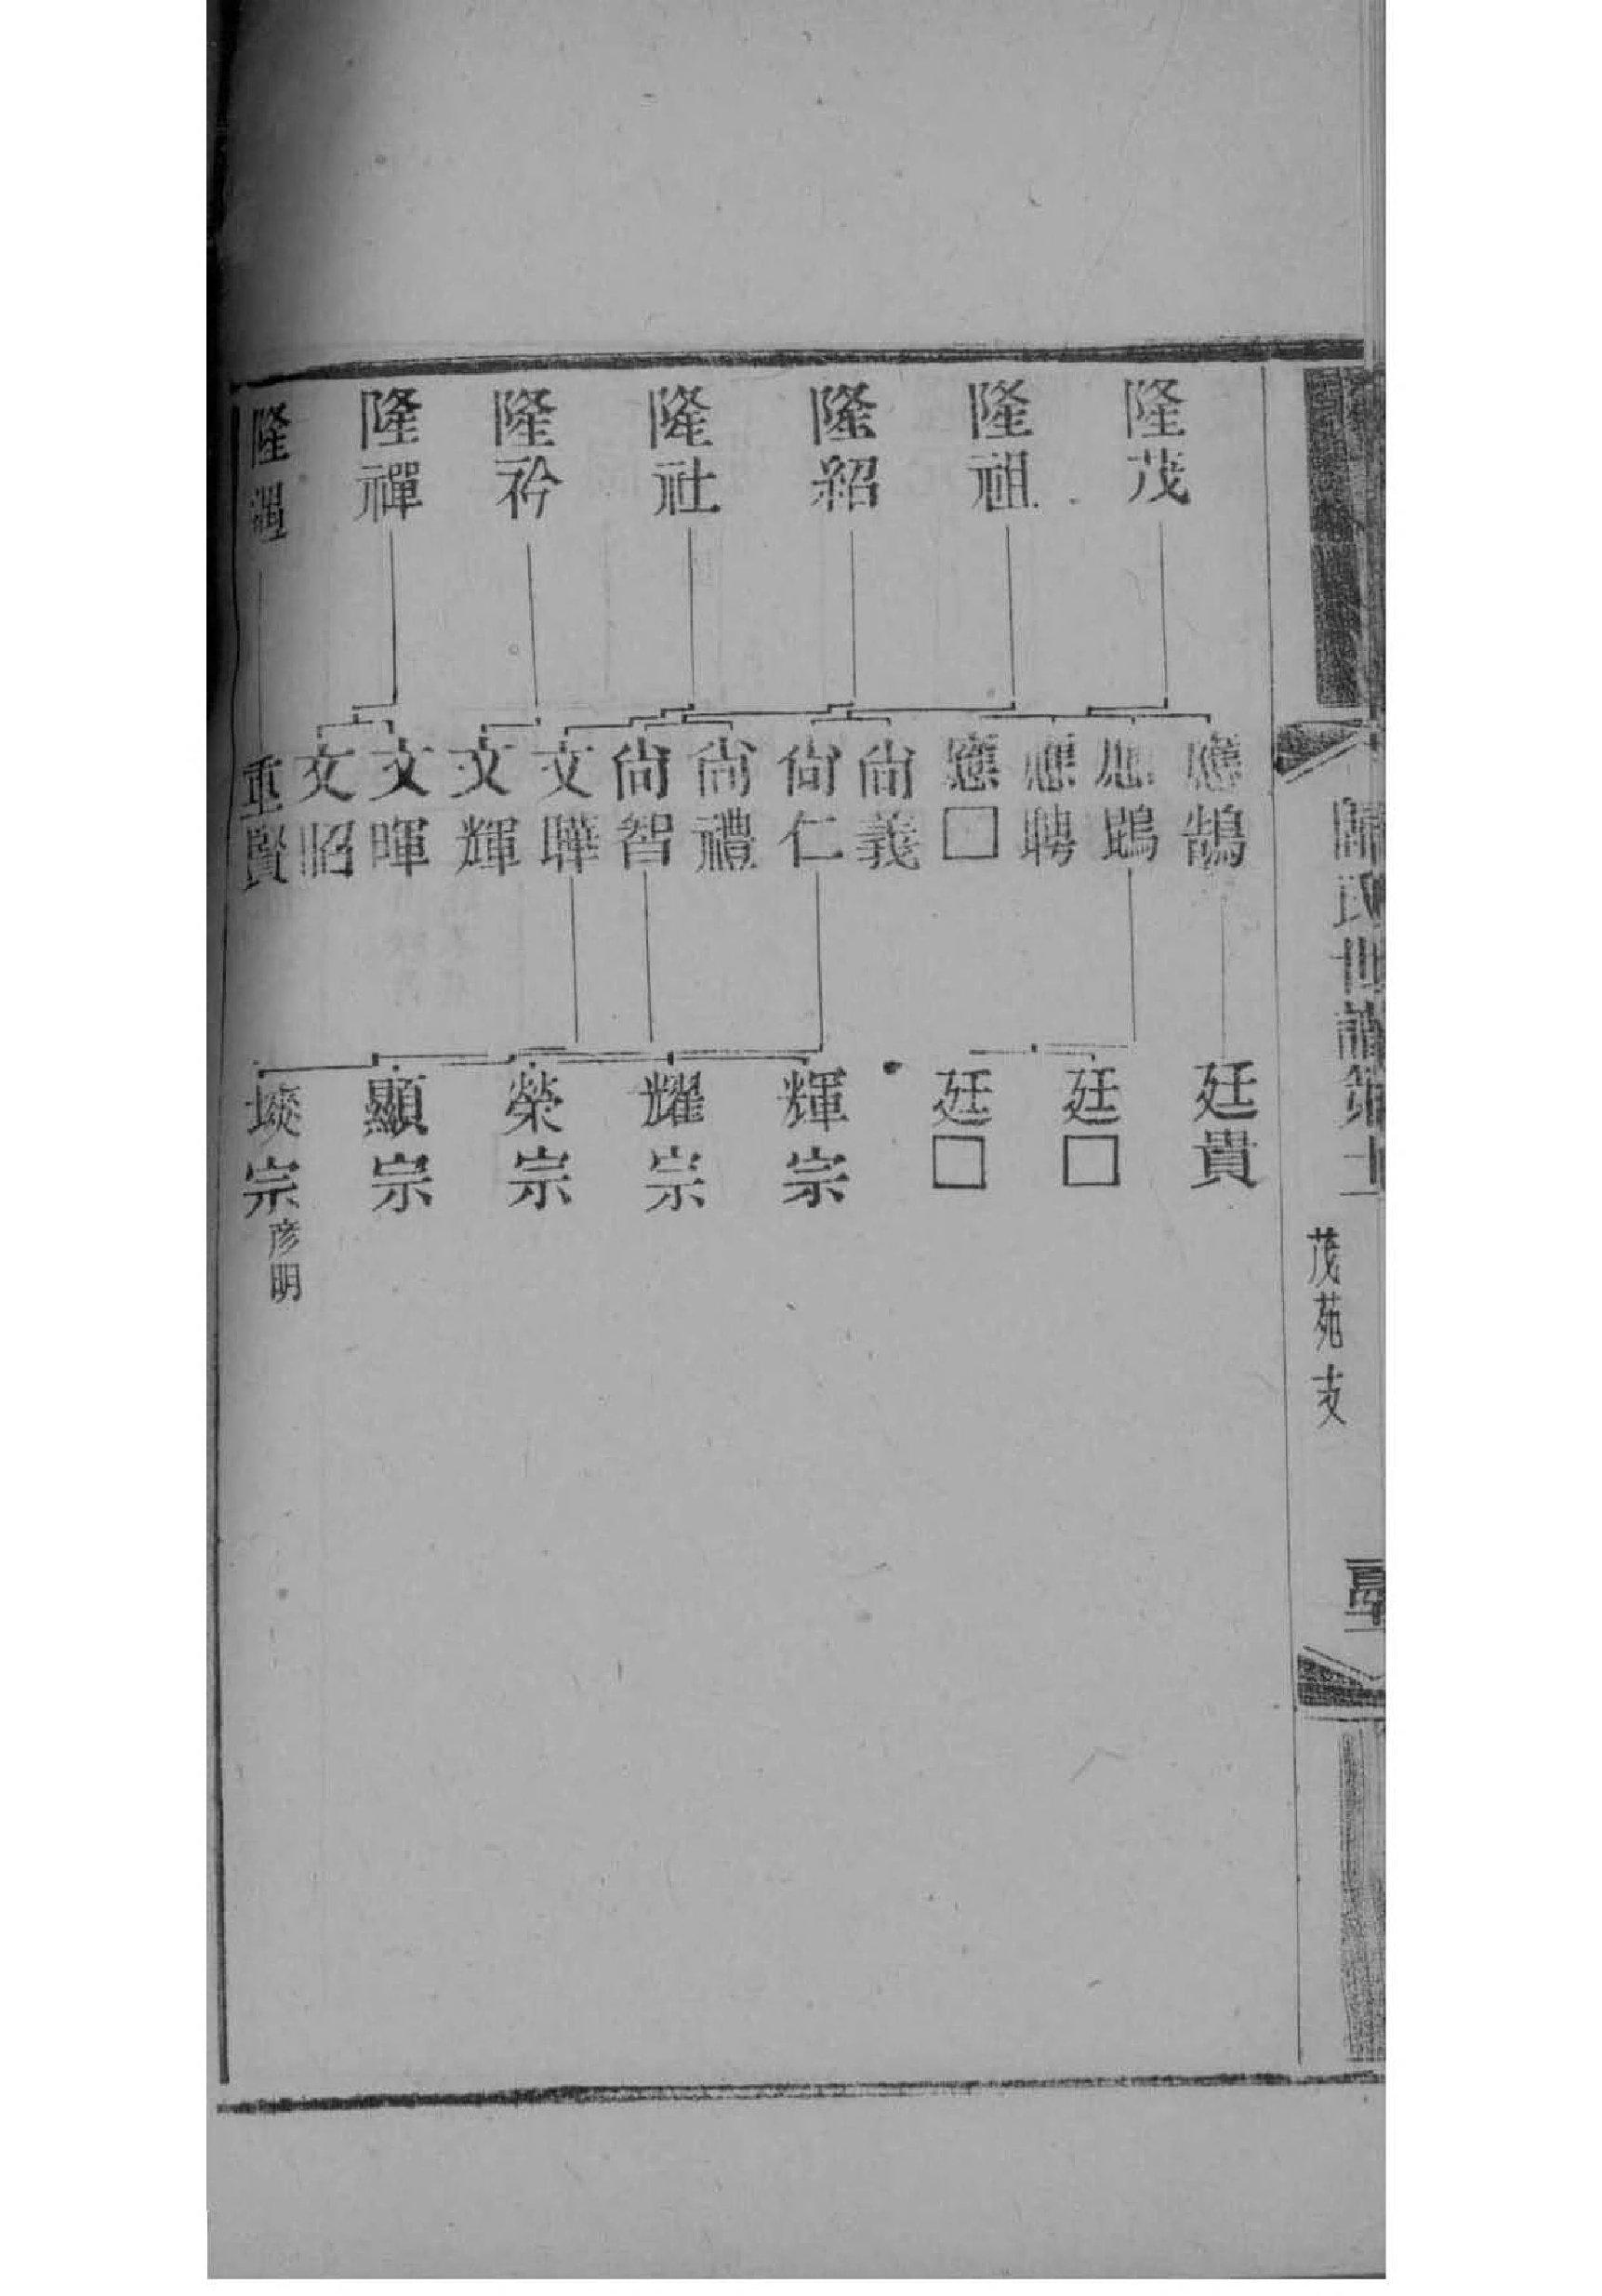 歸氏世譜第十
茂苑支
隆茂
隆祖
隆紹
隆社
隆衿
隆禪
隆
應鵠
應鵾
應聘
應□
尚義
尚仁
尚禮
尚智
文曄
文輝
文暉
文昭
重賢
廷貴
廷□
廷□
輝宗
耀宗
榮宗
顯宗
宗彦明